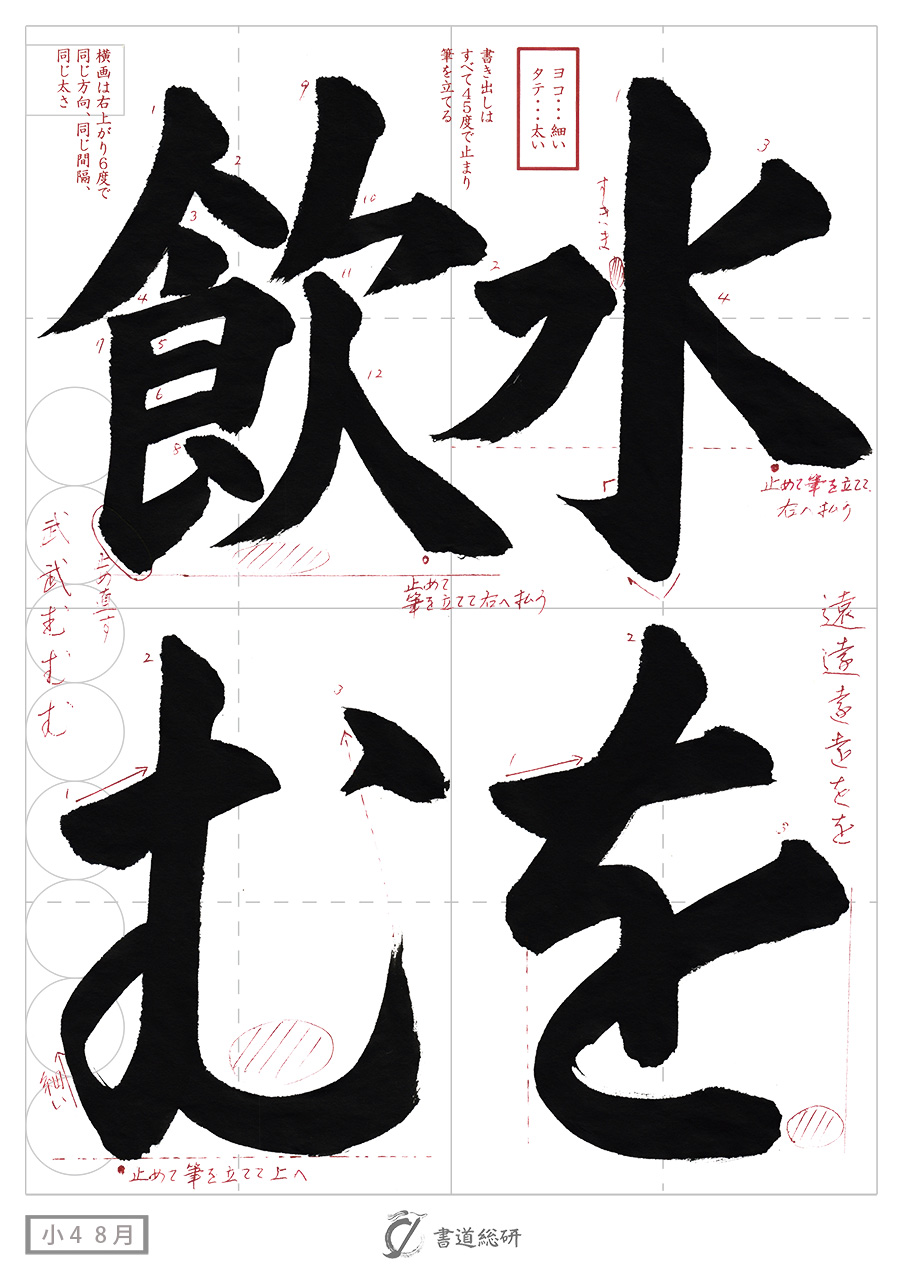 水を
飲む
ヨコ・・・細い
タテ・・・太い
書き出しは
すべて45度で止まり
筆を立てる
横画は右上がり6度で
同じ方向、同じ間隔、
同じ太さ
1
2
3
4
すきま
止めて筆を立てて
右へ払う
1
2
3
4
5
6
7
8
9
10
11
12
止めて
筆を立てて右へ払う
1
2
3
遠遠遠遠をを
1
2
3
武武むむむ
細い
止めて筆を立てて上へ
小4 8月
書道総研